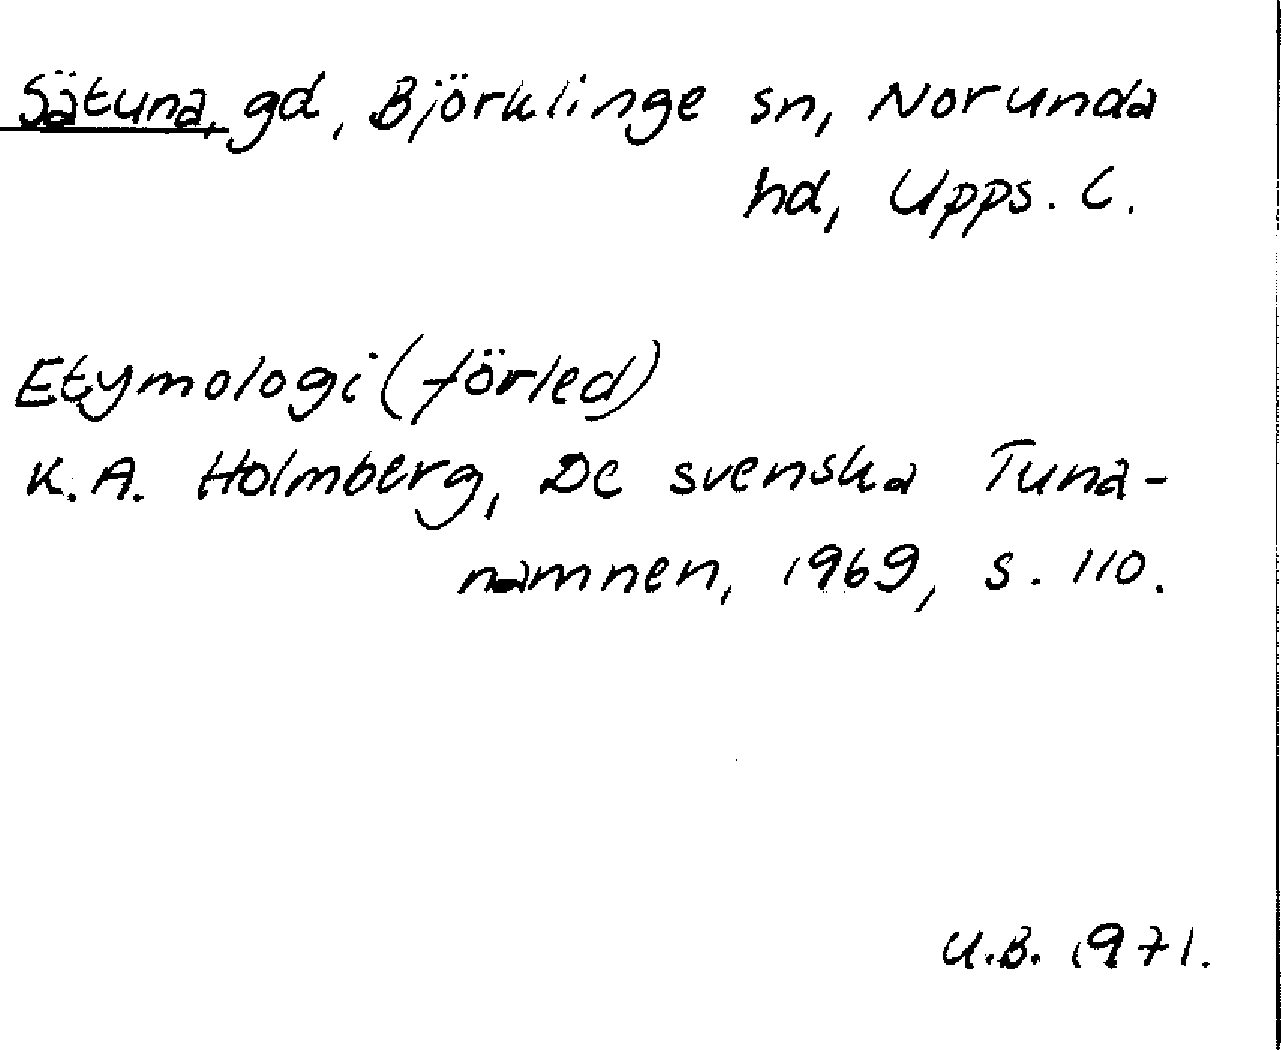 Sätuna, gd, Björklinge sn, Norunda
hd, Upps. C.
Etymologi (förled)
K.A. Holmberg, De svenska Tuna-
namnen, 1969, s. 110.
U.B. 1971.